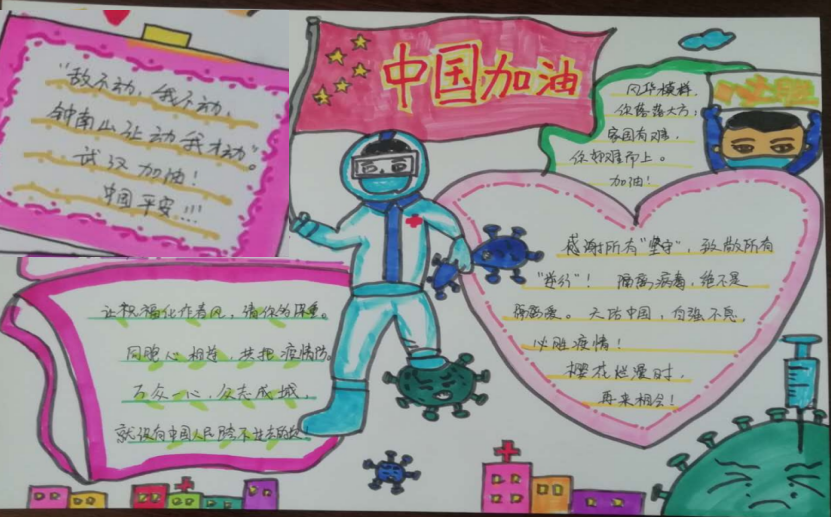 "敌不动，我不动，
钟南山让动我才动"。
武汉加油！
中国平安!!!
中国加油
风华模样，
你落落大方，
家国有难，
你却难而上。
加油！
感谢所有"坚守"，致敬所有
"逆行"！隔离病毒，绝不是
隔离爱。天佑中国，自强不息，
必胜疫情！
樱花烂漫时，
再来相会！
让祝福化作春风，请你多保重。
同胞心相连，共把疫情防。
万众一心，众志成城，
就没有中国人民跨不过去的